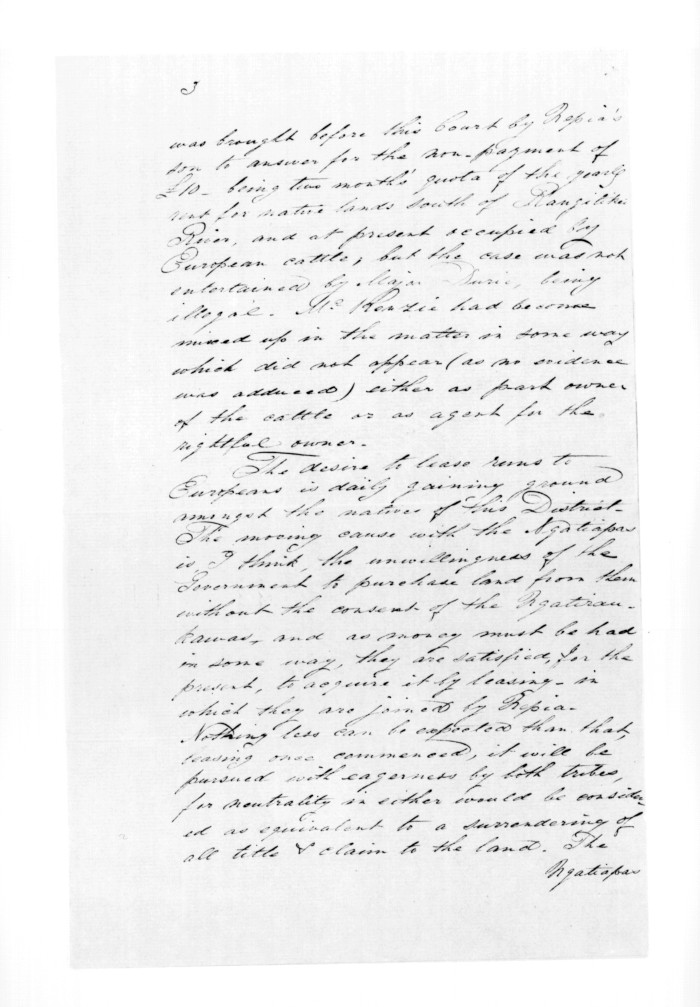 3
was brought before this Court by Repia's
son to answer for the non-payment of
£10- being two month's quota of the yearly
rent for native lands south of Rangitikei
River, and at present occupied by
European cattle; but the case was not
entertained by Major Durie, being
illegal. McKenzie had become
mixed up in the matter in some way
which did not appear (as no evidence
was adduced) either as part owner
of the cattle or as agent for the
rightful owner.
The desire to lease runs to
Europeans is daily gaining ground
amongst the natives of this District-
The moving cause with the Ngatiapas
is, I think, the unwillingness of the
Government to purchase land from them
without the consent of the Ngatirau-
kawas, and as money must be had
in some way, they are satisfied, for the
present, to acquire it by leasing- in
which they are joined by Repia-
Nothing less can be expected than that,
leasing once commenced, it will be
pursued with eagerness by both tribes,
for neutrality in either would be consider-
ed as equivalent to a surrendering of
all title & claim to the land. The
Ngatiapas